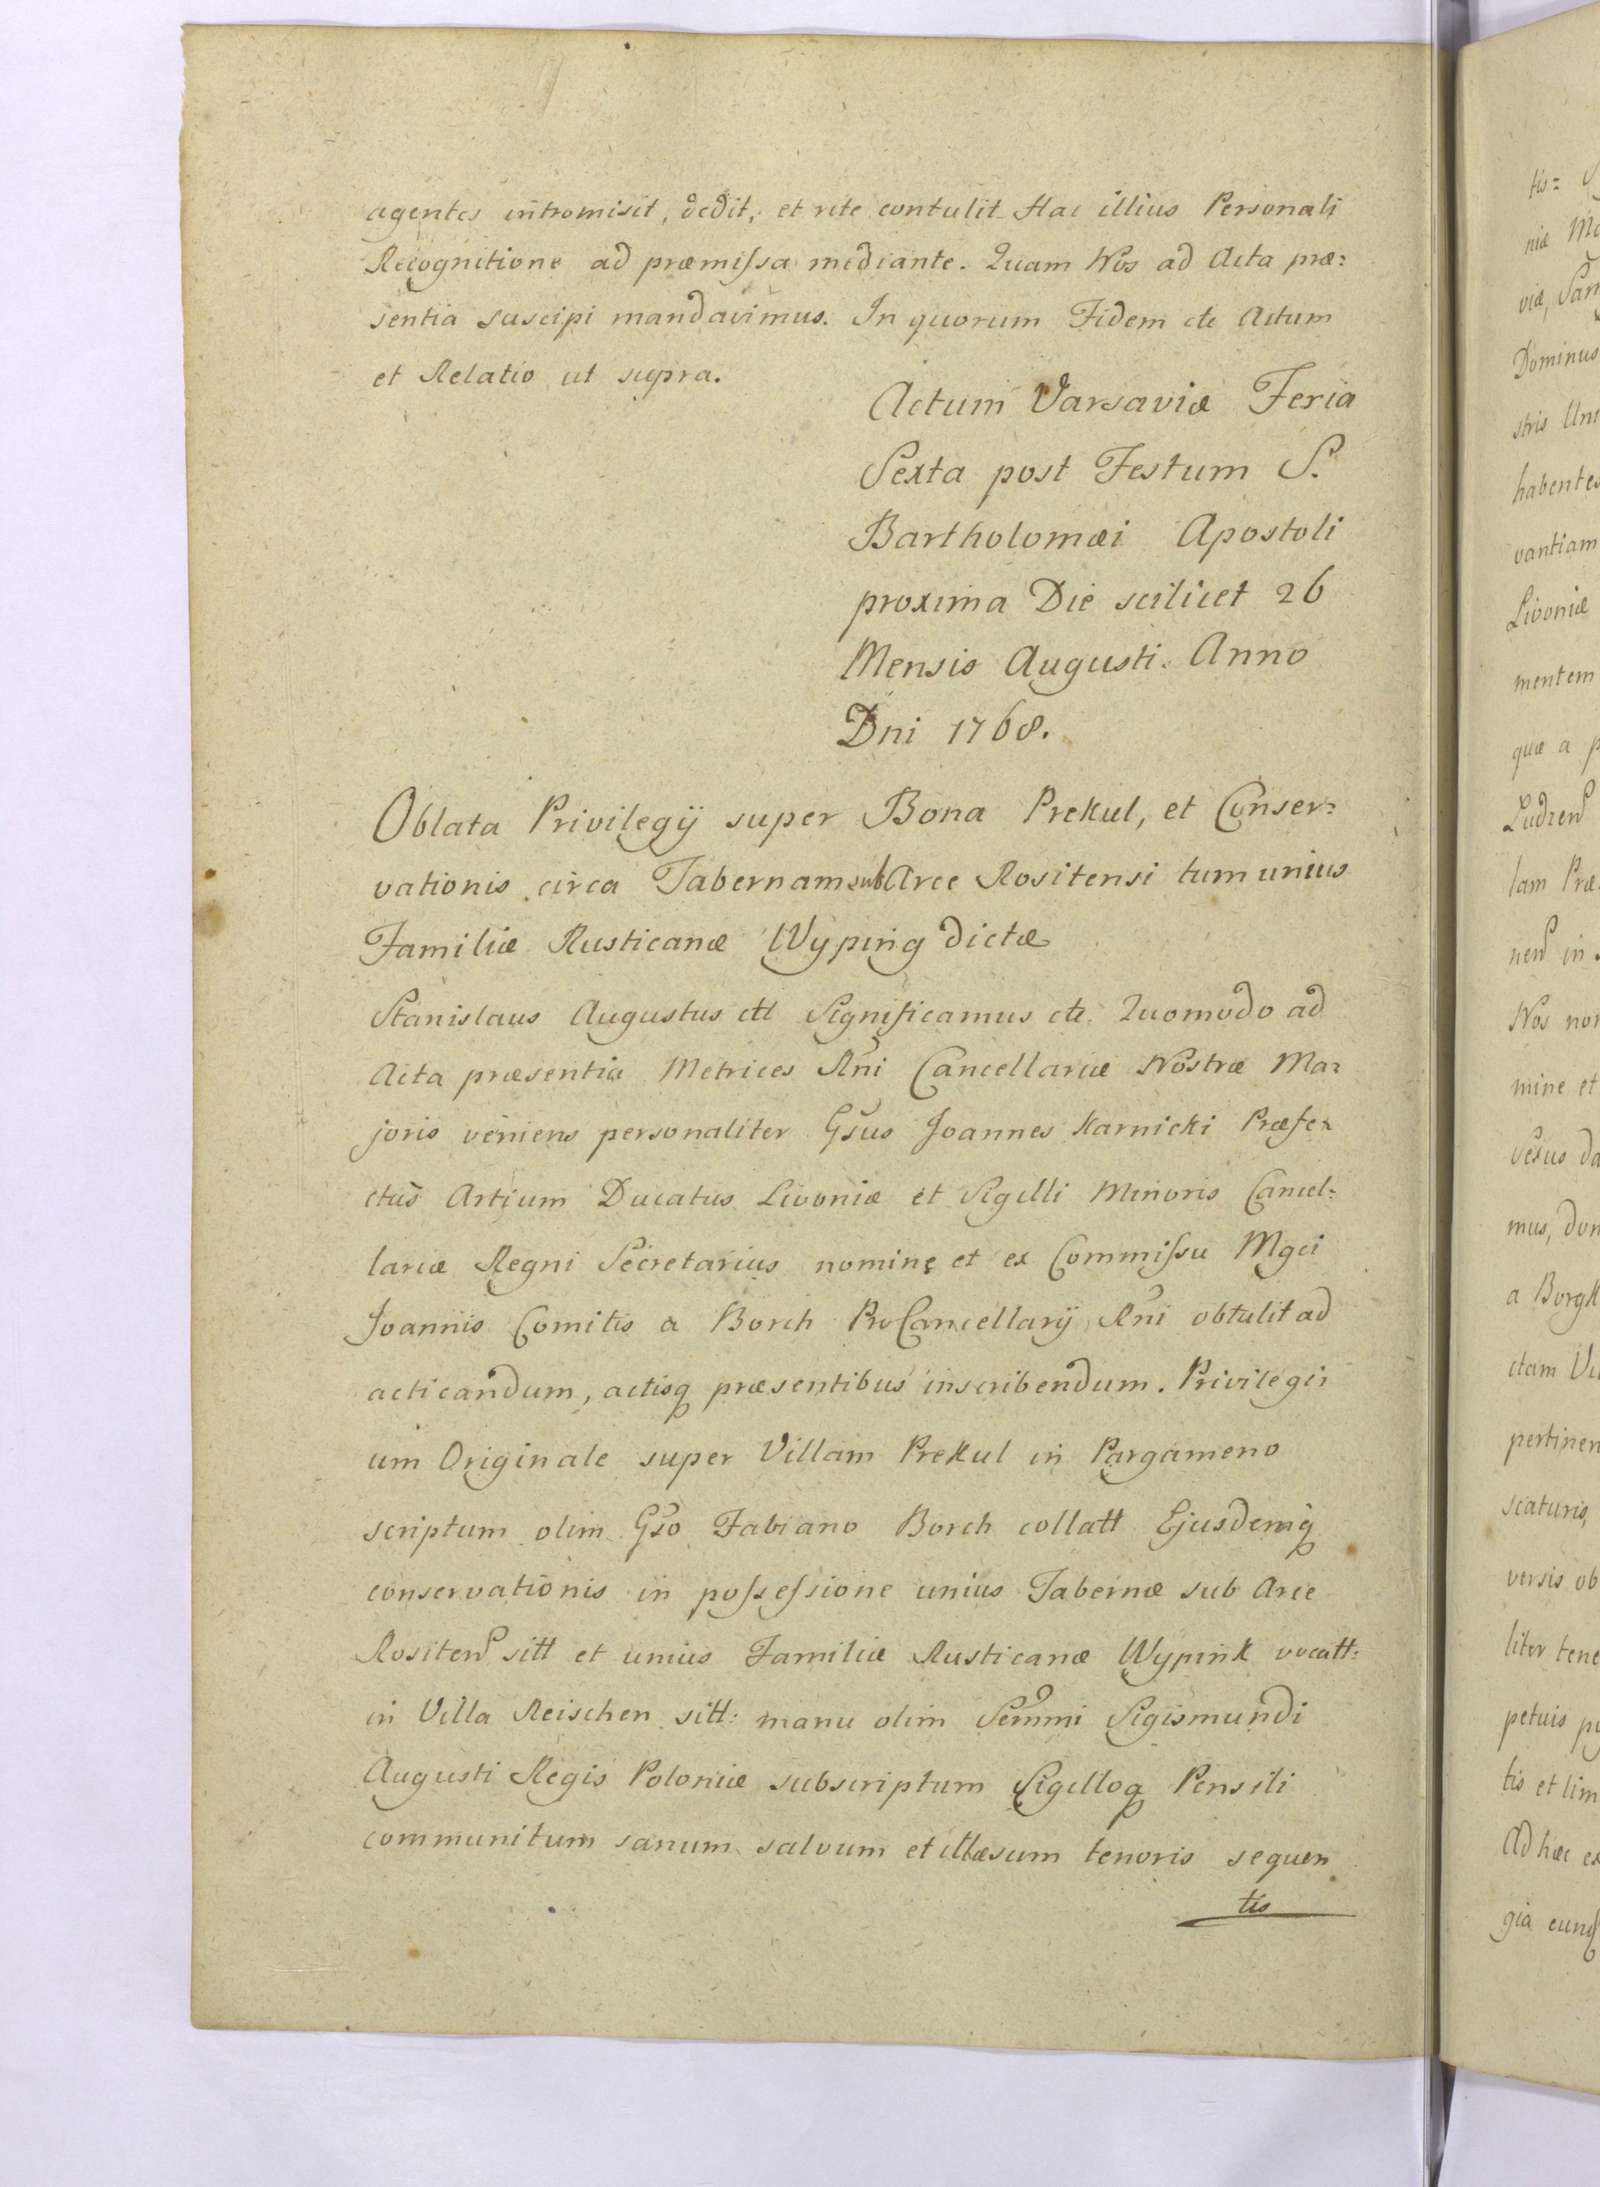 agentes intromisit, dedit, et rite contulit Hac illius Personali
Recognitione ad præmissa mediante. Quam Nos ad Acta præ=
sentia suscipi mandavimus. In quorum Fidem etc Actum
et Relatio ut supra.
Actum Varsaviæ Feria
Sexta post Festum S.
Bartholomæi Apostoli
proxima Die scilicet 26
Mensis Augusti. Anno
Dni 1768.
Oblata Privilegij super Bona Prekul, et Conser=
vationis circa Tabernam sub Arce Rositensi tum unius
Familiæ Rusticanæ Wyping dictæ
Stanislaus Augustus ett Significamus etc. Quomodo ad
Acta præsentia Metrices Rni Cancellariæ Nostræ Ma=
joris veniens personaliter Gsus Joannes Karnicki Præfe=
ctus Artium Ducatus Livoniæ et Sigilli Minoris Cancel=
lariæ Regni Secretarius nomine et ex Commissu Mgci
Joannis Comitis a Borch ProCancellarij Rni obtulit ad
acticandum, actisq præsentibus inscribendum. Privilegi=
um Originale super Villam Prekul in Pargameno
scriptum olim Gso Fabiano Borch collatt Ejusdemq
conservationis in possessione unius Tabernæ sub Arce
Rositen sitt et unius Familiæ Rusticanæ Wypink vocatt:
in Villa Reischen sitt: manu olim Sermmi Sigismundi
Augusti Regis Poloniæ subscriptum Sigilloq Pensili
communitum sanum salvum et illæsum tenoris sequen
tis
tis=
niæ
viæ,
Dominus
stris
habentes
vantiam
Livoniæ
mentem
quæ a
Ludzen
lam Præ
nen in
Nos non
mine et
mus, don
a Borgk
ctam
pertinen
scaturis,
versis ob
liter tene
petuis
tis et lim
Ad hæc ex
gia